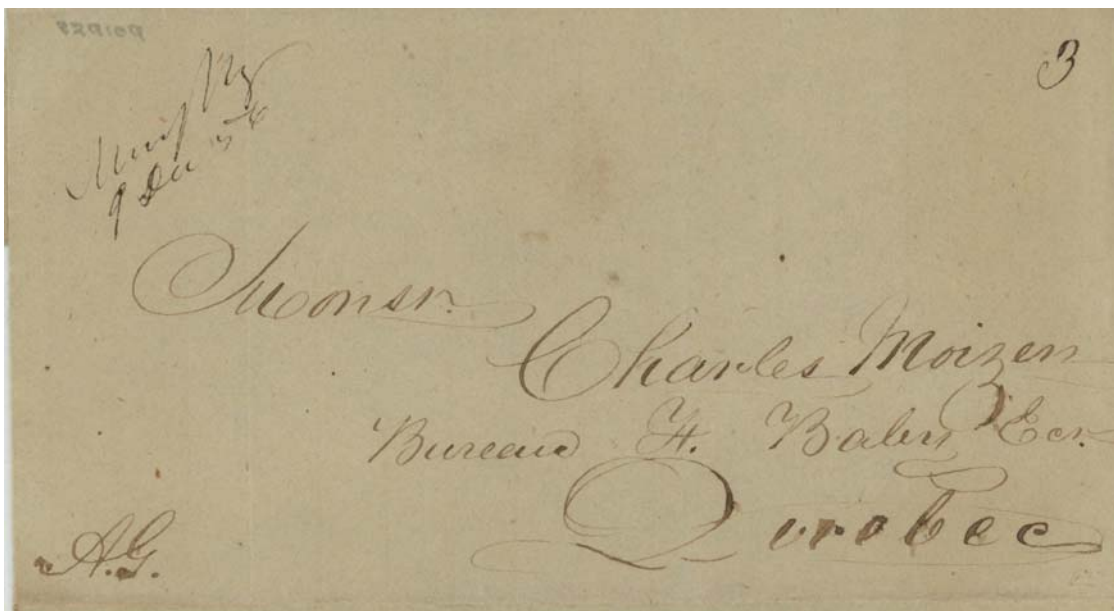 3
9 Dec 56
Monsr.
Charles Moizen
Bureau H. Baby Ecr.
Quebec
A.G.